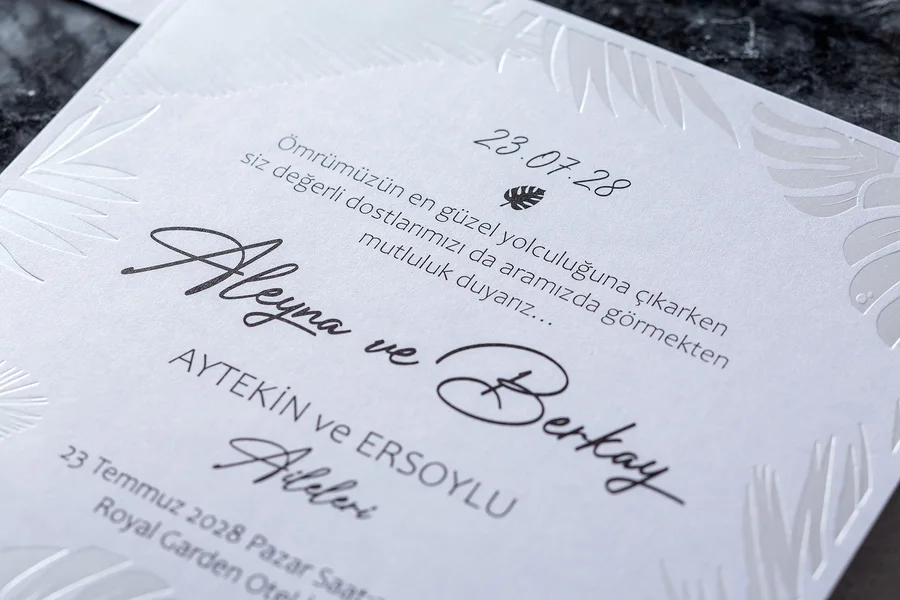 23.07.28
Ömrümüzün en güzel yolculuğuna çıkarken
siz değerli dostlarımızı da aramızda görmekten
mutluluk duyarız...
Aleyna ve Berkay
AYTEKİN ve ERSOYLU
Aileleri
23 Temmuz 2028 Pazar Saat
Royal Garden Otel